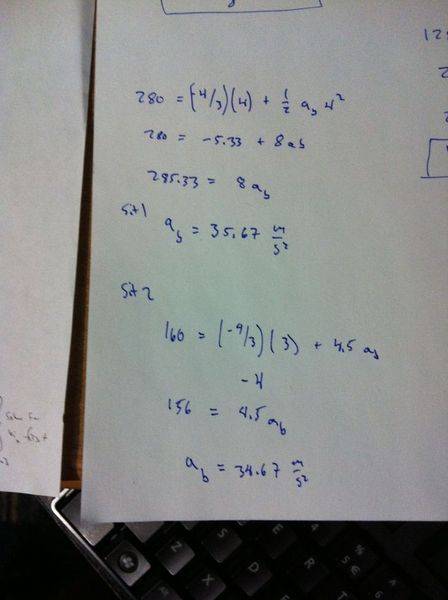 280 = (-4/3)(4) + 1/2 a_b 4²
280 = -5.33 + 8a_b
285.33 = 8a_b
Sit 1
a_b = 35.67 m/s²
Sit 2
160 = (-4/3)(3) + 4.5 a_b
-4
156 = 4.5 a_b
a_b = 34.67 m/s²
128
Z
X
C